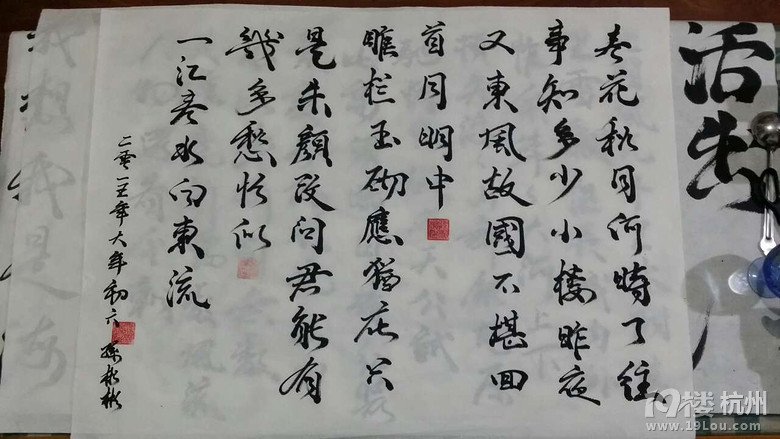 春花秋月何時了往
事知多少小樓昨夜
又東風故國不堪回
首月明中
雕栏玉砌應猶在只
是朱顏改问君能有
幾多愁恰似
一江春水向東流
二零一五年大年初六
活
19楼 杭州
www.19Lou.com